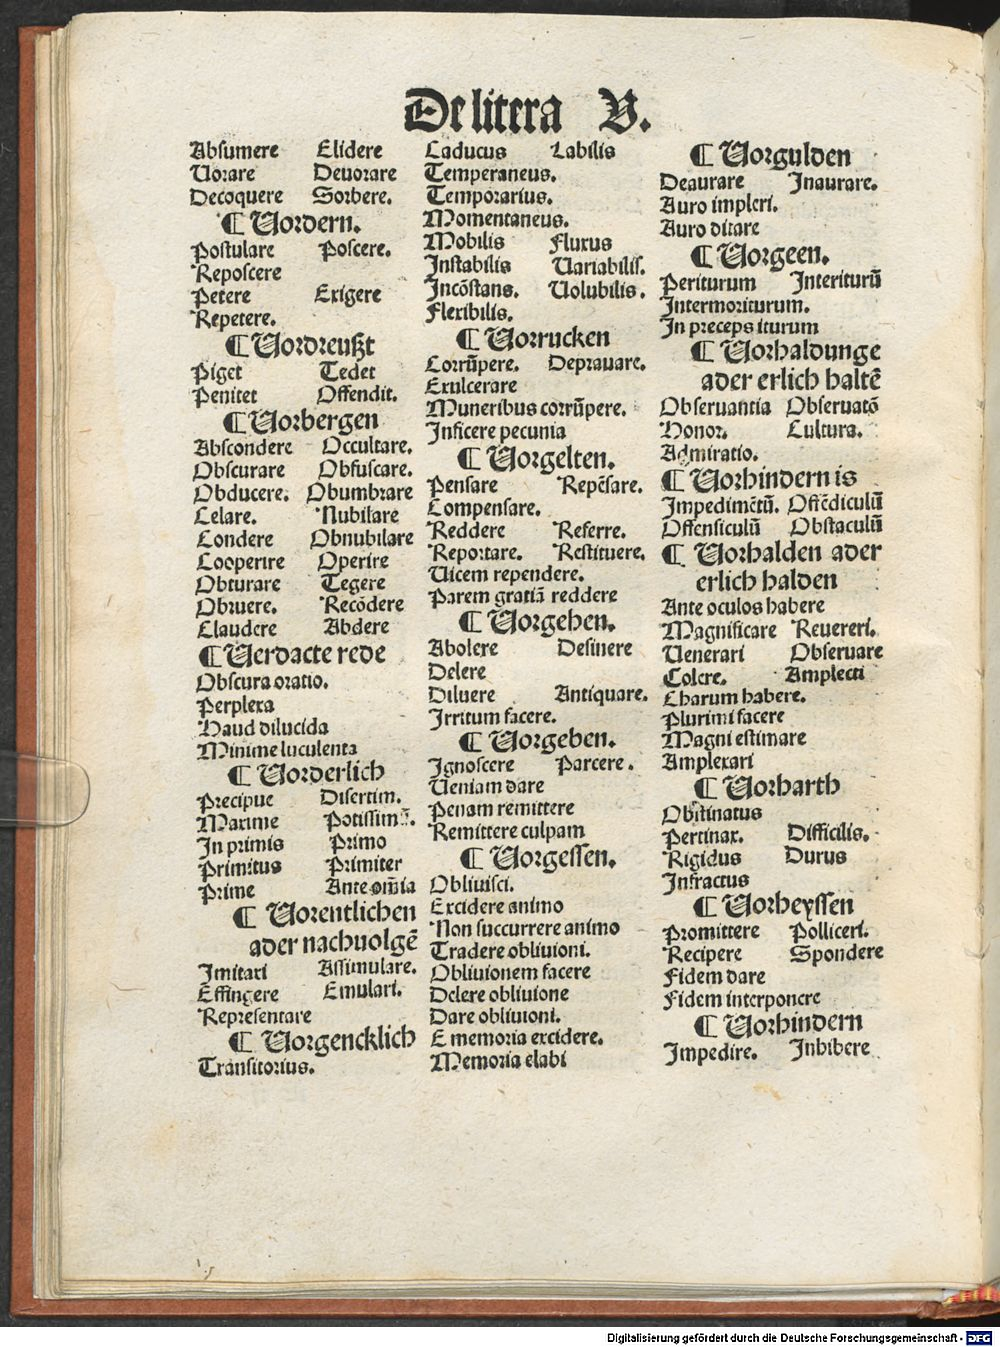 De litera V.
Absumere Elidere
Uorare Deuorare
Decoquere Sorbere.
¶ Vordern.
Postulare Poscere.
Reposcere
Petere Exigere
Repetere.
¶ Vordreußt
Piget Tedet
Penitet Offendit.
¶ Vorbergen
Abscondere Occultare.
Obscurare Obfuscare.
Obducere. Obumbrare
Celare. Nubilare
Condere Obnubilare
Cooperire Operire
Obturare Tegere
Obruere. Recōdere
Claudere Abdere
¶ Verdacte rede
Obscura oratio.
Perplexa
Haud dilucida
Minime luculenta
¶ Vorderlich
Precipue Disertim.
Maxime Potissimū.
In primis Primo
Primitus Primiter
Prime Ante om̄ia
¶ Vorentlichen
ader nachuolgē
Imitari Assimulare.
Effingere Emulari.
Representare
¶ Vorgencklich
Transitorius.
Caducus Labilis
Temperaneus.
Temporarius.
Momentaneus.
Mobilis Fluxus
Instabilis Uariabilis.
Incōstans. Uolubilis.
Flexibilis.
¶ Vorrucken
Corrūpere. Deprauare.
Exulcerare
Muneribus corrūpere.
Inficere pecunia
¶ Vorgelten.
Pensare Repēsare.
Compensare.
Reddere Referre.
Reportare. Restituere.
Uicem rependere.
Parem gratiā reddere
¶ Vorgehen.
Abolere Desinere
Delere
Diluere Antiquare.
Irritum facere.
¶ Vorgeben.
Ignoscere Parcere.
Ueniam dare
Penam remittere
Remittere culpam
¶ Vorgessen.
Obliuisci.
Excidere animo
Non succurrere animo
Tradere obliuioni.
Obliuionem facere
Delere obliuione
Dare obliuioni.
E memoria excidere.
Memoria elabi
¶ Vorgulden
Deaurare Inaurare.
Auro impleri.
Auro ditare
¶ Vorgeen.
Periturum Interiturū
Intermoriturum.
In preceps iturum
¶ Vorhaldunge
ader erlich haltē
Obseruantia Obseruatō
Honor. Cultura.
Admiratio.
¶ Vorhindern is
Impedimētū. Offēdiculū
Offensiculū Obstaculū
¶ Vorhalden ader
erlich halden
Ante oculos habere
Magnificare Reuereri.
Uenerari Obseruare
Colere. Amplecti
Charum habere.
Plurimi facere
Magni estimare
Amplexari
¶ Vorharth
Obstinatus
Pertinax. Difficilis.
Rigidus Durus
Infractus
¶ Vorheyssen
Promittere Polliceri.
Recipere Spondere
Fidem dare
Fidem interponere
¶ Vorhindern
Impedire. Inhibere
Digitalisierung gefördert durch die Deutsche Forschungsgemeinschaft - DFG